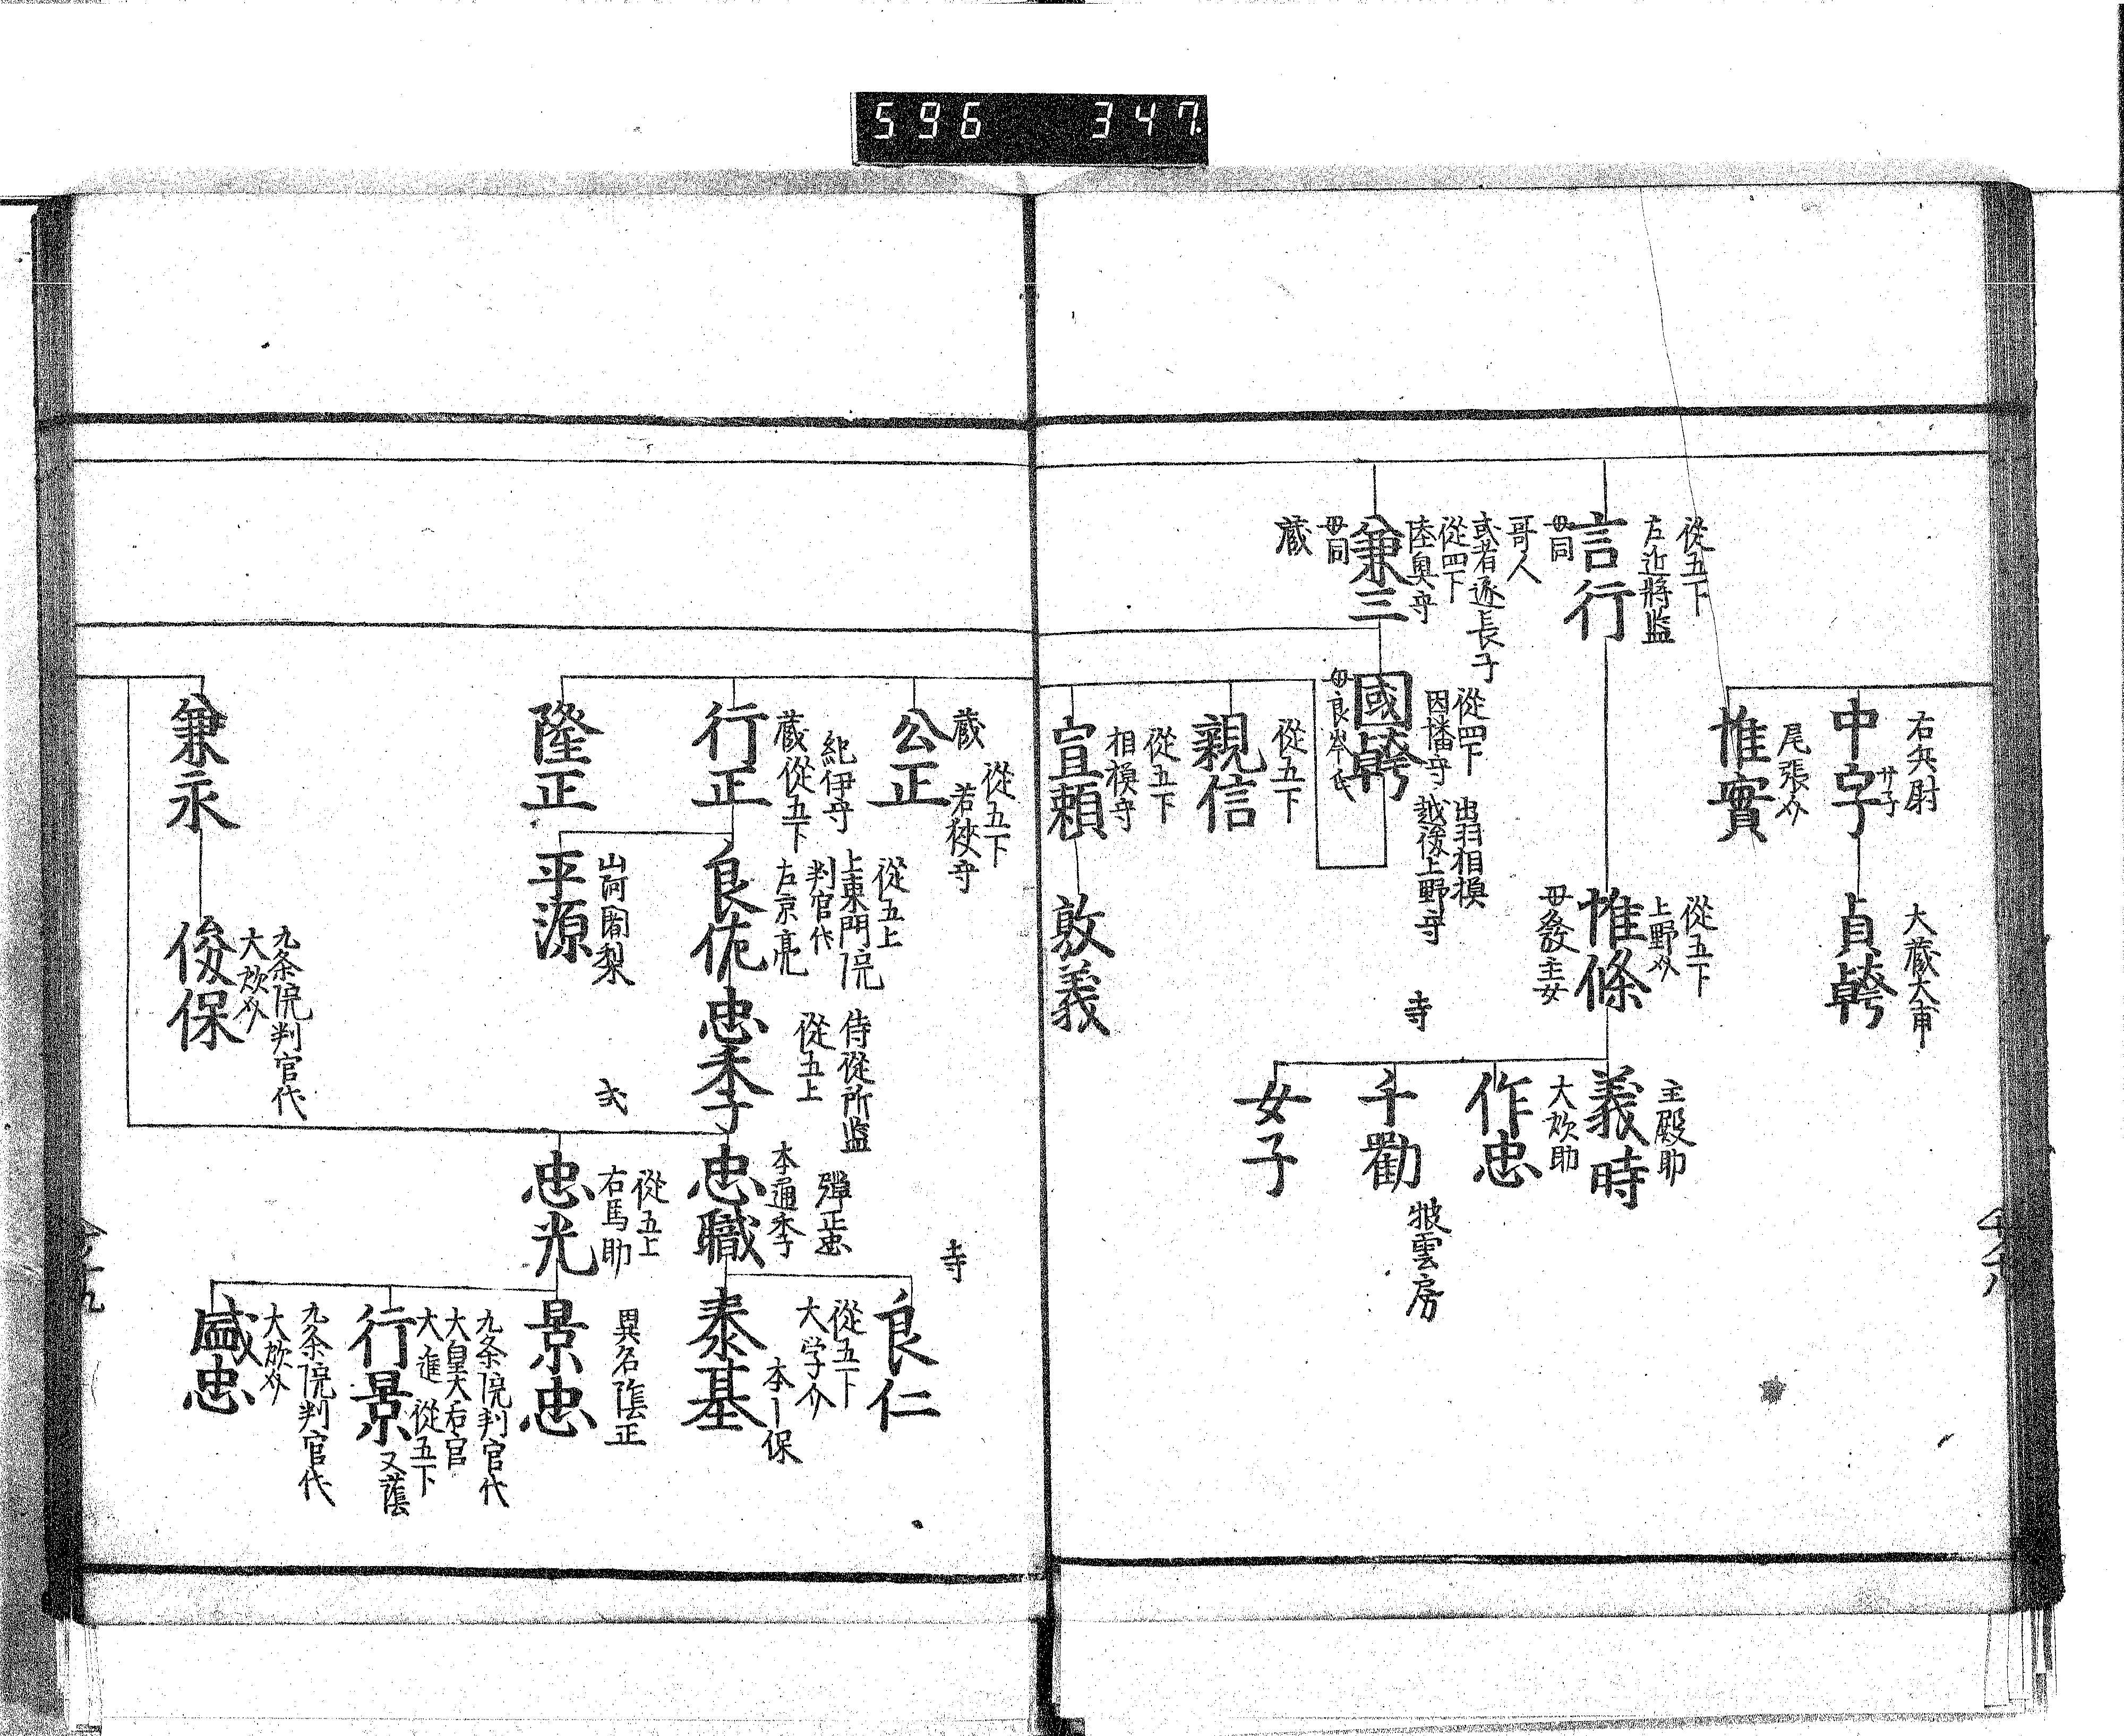 596 347
右兵尉
中字
サ子
尾張介
惟實
大蔵大甫
貞幹
從五下
左近將監
言行
母同
哥人
或者逐長子
從四下
陸奥守
兼三
母同
蔵
從五下
上野介
惟條
母敎主女
主殿助
義時
大炊助
作忠
千勸
披雲房
女子
從四下 出羽相模
因播守 越後上野守
國幹
母良岑氏
寺
從五下
親信
從五下
相模守
宣頼
敦義
從五下
若狹守
蔵
公正
紀伊守
蔵從五下
行正
隆正
從五上
上東門院
判官代
左京亮
良佐
山阿闍梨
平源
侍從所監
從五上
忠季
弍
彈正忠
本通季
忠職
從五上
右馬助
忠光
寺
良仁
從五下
大学介
本ー保
泰基
異名蔭正
景忠
九条院判官代
大皇大后宮
大進 從五下
行景
又蔭
九条院判官代
大炊介
盛忠
兼永
九条院判官代
大炊介
俊保